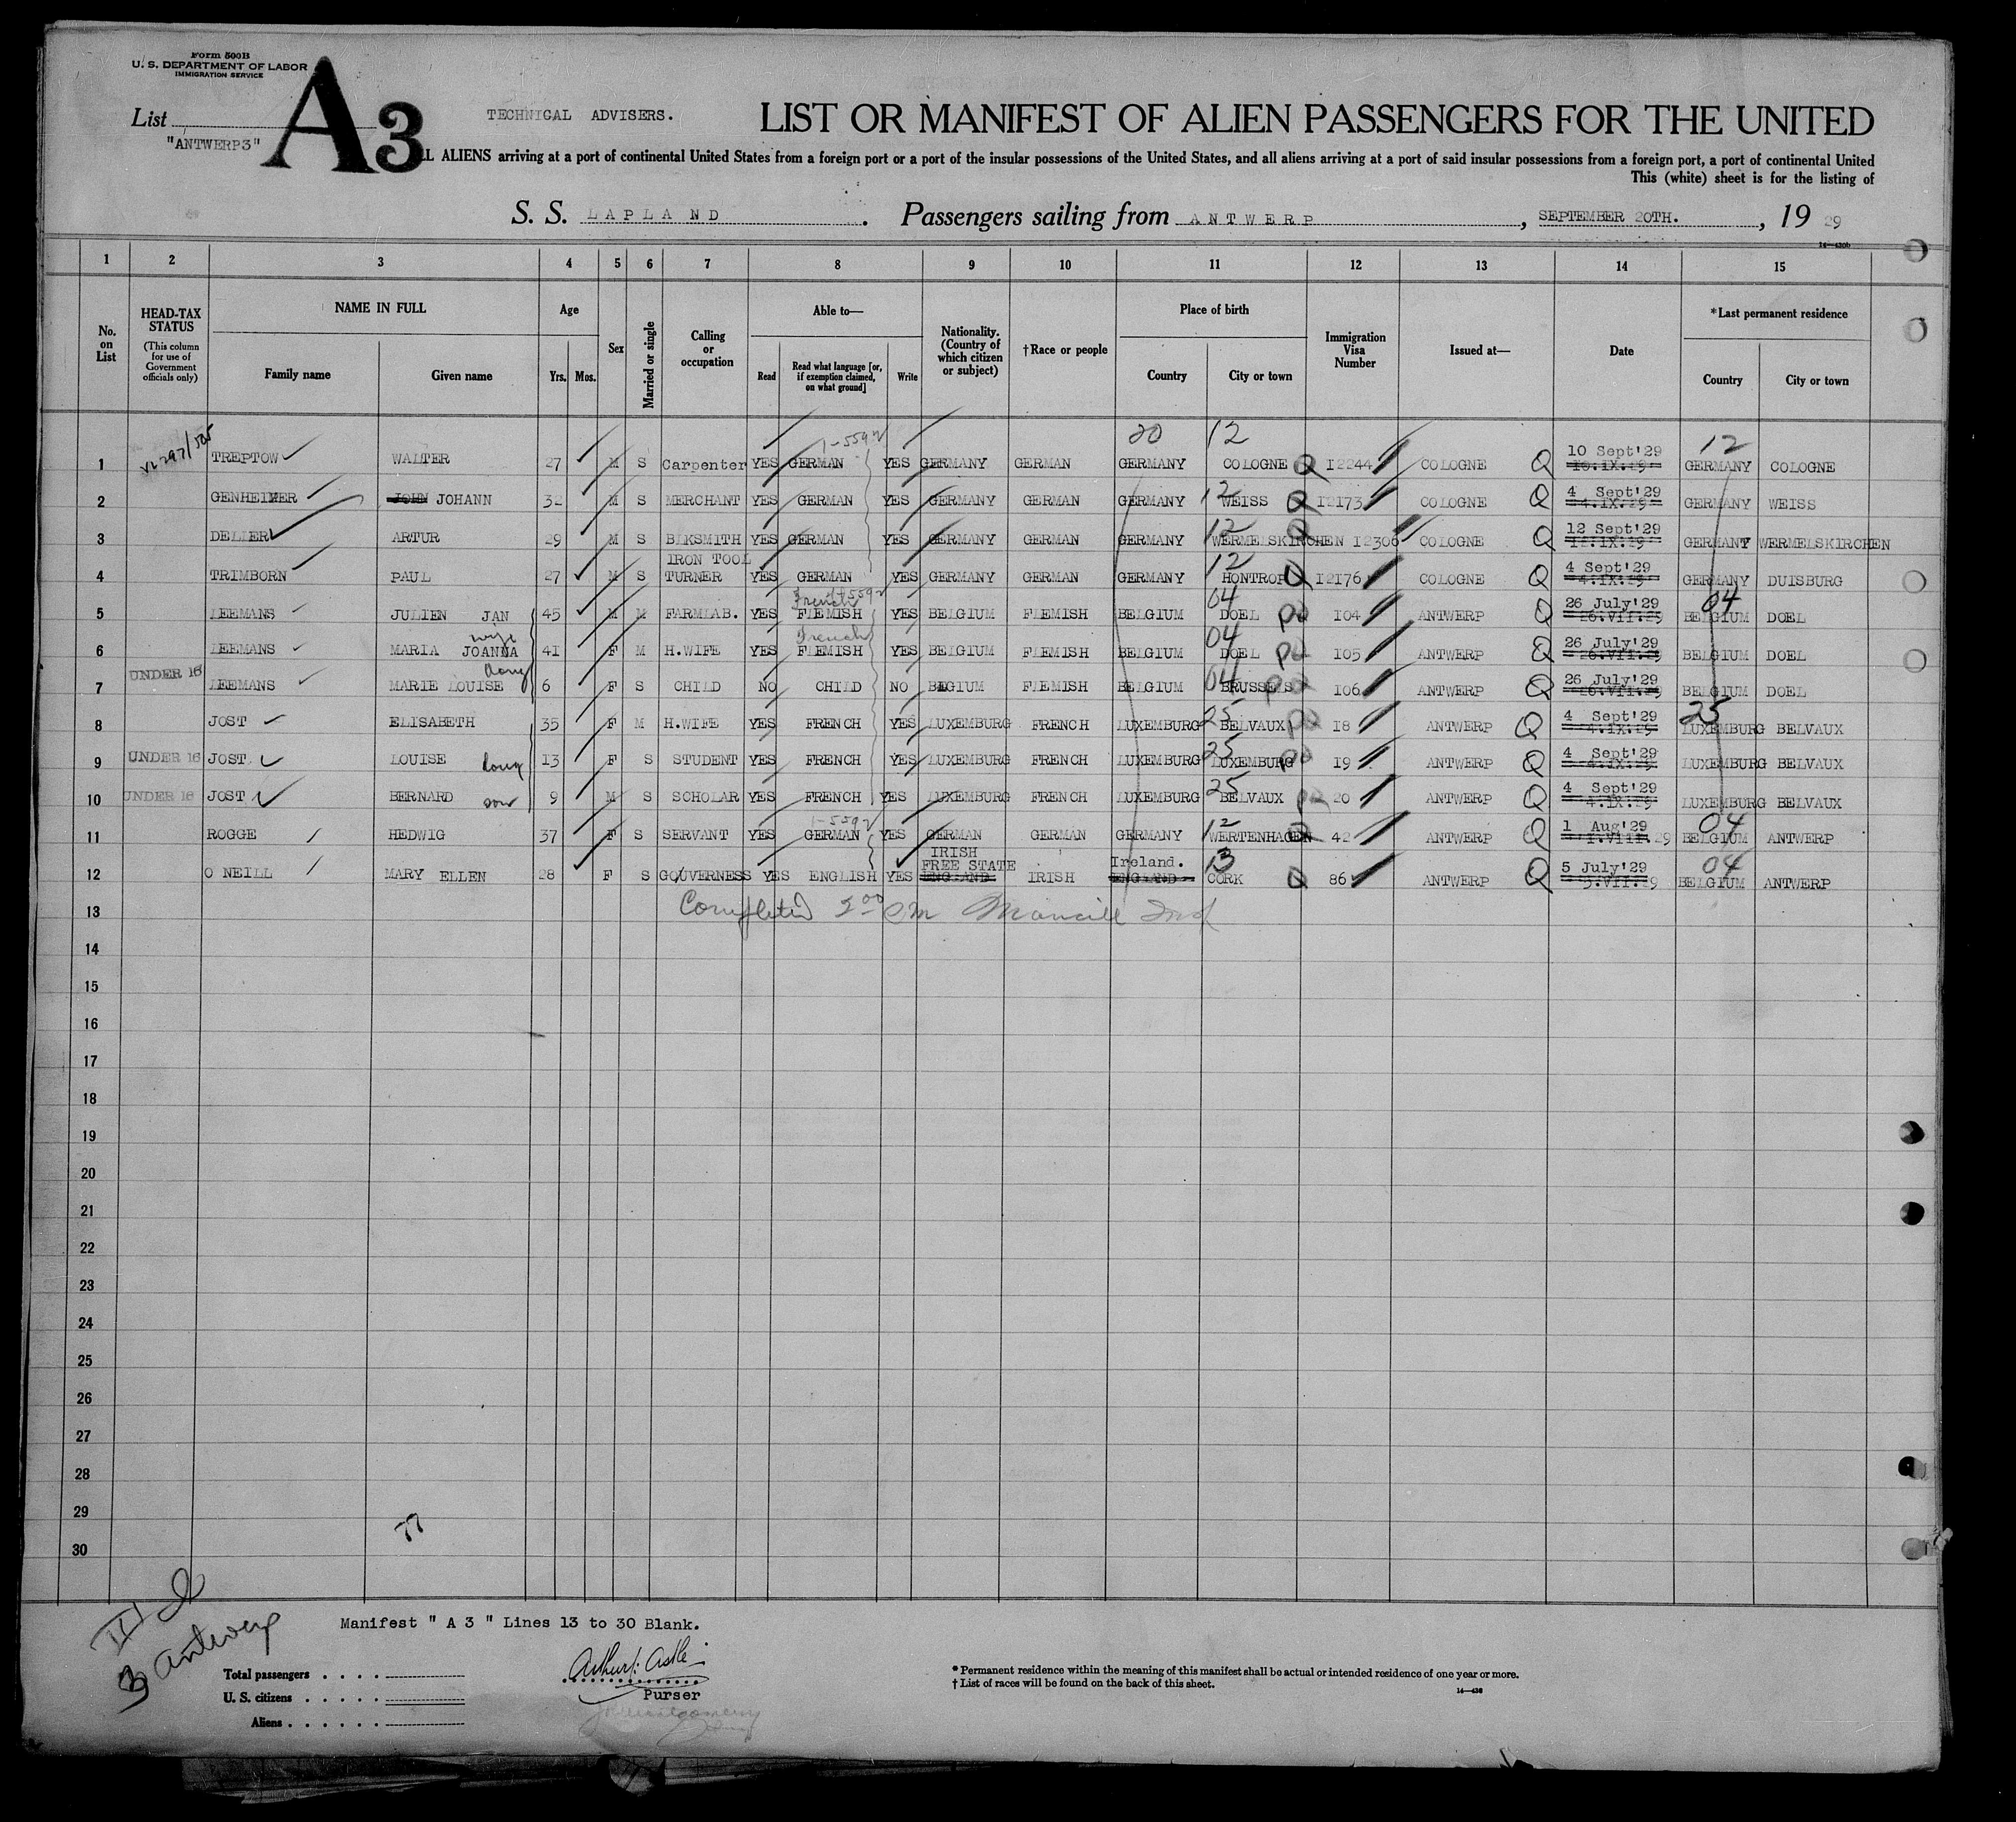 Form 500B
U. S. DEPARTMENT OF LABOR
IMMIGRATION SERVICE
List
"ANTWERP3"
A3
TECHNICAL ADVISERS.
LIST OR MANIFEST OF ALIEN PASSENGERS FOR THE UNITED
L ALIENS arriving at a port of continental United States from a foreign port or a port of the insular possessions of the United States, and all aliens arriving at a port of said insular possessions from a foreign port, a port of continental United
This (white) sheet is for the listing of
S. S. LAPLAND. Passengers sailing from ANTWERP, SEPTEMBER 20TH., 19 29
1 2 3 4 5 6 7 8 9 10 11 12 13 14 15
No. on List
HEAD-TAX STATUS (This column for use of Government officials only)
NAME IN FULL
Family name Given name
Age
Yrs. Mos.
Sex
Married or single
Calling or occupation
Able to—
Read Read what language [or, if exemption claimed, on what ground] Write
Nationality. (Country of which citizen or subject)
†Race or people
Place of birth
Country City or town
Immigration Visa Number
Issued at—
Date
*Last permanent residence
Country City or town
20 12 12
1 TREPTOW WALTER 27 M S Carpenter YES GERMAN YES GERMANY GERMAN GERMANY COLOGNE Q 12244 COLOGNE Q 10 Sept'29 GERMANY COLOGNE
2 GENHEIMER JOHN JOHANN 32 M S MERCHANT YES GERMAN YES GERMANY GERMAN GERMANY 12 WEISS Q 12173 COLOGNE Q 4 Sept'29 GERMANY WEISS
3 DELLER ARTUR 29 M S BLKSMITH YES GERMAN YES GERMANY GERMAN GERMANY 12 WERMELSKIRCHEN Q 12306 COLOGNE Q 12 Sept'29 GERMANY WERMELSKIRCHEN
4 TRIMBORN PAUL 27 M S IRON TOOL TURNER YES GERMAN YES GERMANY GERMAN GERMANY 12 HONTROP Q 12176 COLOGNE Q 4 Sept'29 GERMANY DUISBURG
5 LEEMANS JULIEN JAN 45 M M FARMLAB. YES French FLEMISH YES BELGIUM FLEMISH BELGIUM 04 DOEL 104 ANTWERP Q 26 July'29 04 BELGIUM DOEL
6 LEEMANS MARIA JOANNA wife 41 F M H.WIFE YES French FLEMISH YES BELGIUM FLEMISH BELGIUM 04 DOEL 105 ANTWERP Q 26 July'29 BELGIUM DOEL
7 UNDER 16 LEEMANS MARIE LOUISE 6 F S CHILD NO CHILD NO BEGIUM FLEMISH BELGIUM 04 BRUSSELS 106 ANTWERP Q 26 July'29 BELGIUM DOEL
8 JOST ELISABETH 35 F M H.WIFE YES FRENCH YES LUXEMBURG FRENCH LUXEMBURG 25 BELVAUX 18 ANTWERP Q 4 Sept'29 25 LUXEMBURG BELVAUX
9 UNDER 16 JOST LOUISE 13 F S STUDENT YES FRENCH YES LUXEMBURG FRENCH LUXEMBURG 25 LUXEMBURG 19 ANTWERP Q 4 Sept'29 LUXEMBURG BELVAUX
10 UNDER 16 JOST BERNARD son 9 M S SCHOLAR YES FRENCH YES LUXEMBURG FRENCH LUXEMBURG 25 BELVAUX 20 ANTWERP Q 4 Sept'29 LUXEMBURG BELVAUX
11 ROGGE HEDWIG 37 F S SERVANT YES GERMAN YES GERMAN GERMAN GERMANY 12 WERTENHAGEN 42 ANTWERP Q 1 Aug'29 04 BELGIUM ANTWERP
12 O NEILL MARY ELLEN 28 F S GOUVERNESS YES ENGLISH YES IRISH FREE STATE ENGLAND IRISH Ireland. ENGLAND 13 CORK Q 86 ANTWERP Q 5 July'29 04 BELGIUM ANTWERP
13 Completed
14
15
16
17
18
19
20
21
22
23
24
25
26
27
28
29
30
77
Manifest " A 3 " Lines 13 to 30 Blank.
3 Antwerp
Total passengers
U. S. citizens
Aliens
Purser
* Permanent residence within the meaning of this manifest shall be actual or intended residence of one year or more.
† List of races will be found on the back of this sheet.